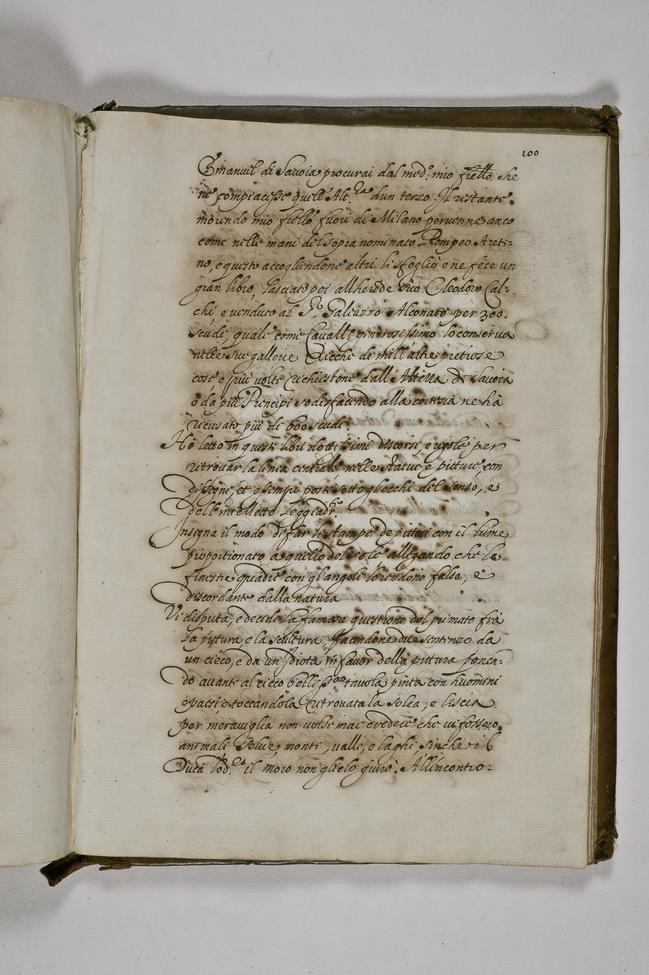 100
Emanuil di Savoia procurai dal med.º mio frello, che
ne compiacesse quell'Alt.za d'un terzo. Il restante,
morendo mio frello fuori di Milano pervenne anco
come nelle mani del sopranominato Pompeo Areti-
no, e questo accogliendone altri li sfogliò e ne fece un
gran libro, lasciato poi all'herede suo Cleodoro Cal-
chi, e venduto al S.r Galeazzo Alconato per 300.
scudi, quale come Cavall.r generosissimo lo conserva
nelle sue gallerie Ricche di mill'altre pretiose
cose e più volte richiestone dall'Altezza di Savoia
o da più Principi sodisfacendo alla cortesia ne ha
ricusato più di 600 scudi.
Hò letto in questi libri dottissimi discorsi, e regole per
ritrovar la linea centrale nelle statue, e pitture con
dissegni, et esempii posti sotto gl'occhi del senso, e
dell'intelletto leggiadr.
Insegna il modo di far le stampe de pittori con il lume
proportionato a quello del sole allegando che le
finestre quadre con gl'angoli lo rendono falso, e
discordante dalla natura
Vi disputa, e decide la famosa questione del primato frà
la pittura e la scultura, facendone due sentenze da
un cieco, e da un Idiota in favor della pittura ponen-
do avanti al cieco belliss.ma tavola pinta con huomini
e paesi e toccandola, e ritrovatala solea, e liscia
per meraviglia non volse mai credere che vi fossero
animali, selve, monti, valli, e laghi, sinche il
Duca Lod.co il moro non gliele giurò. All'incontro: